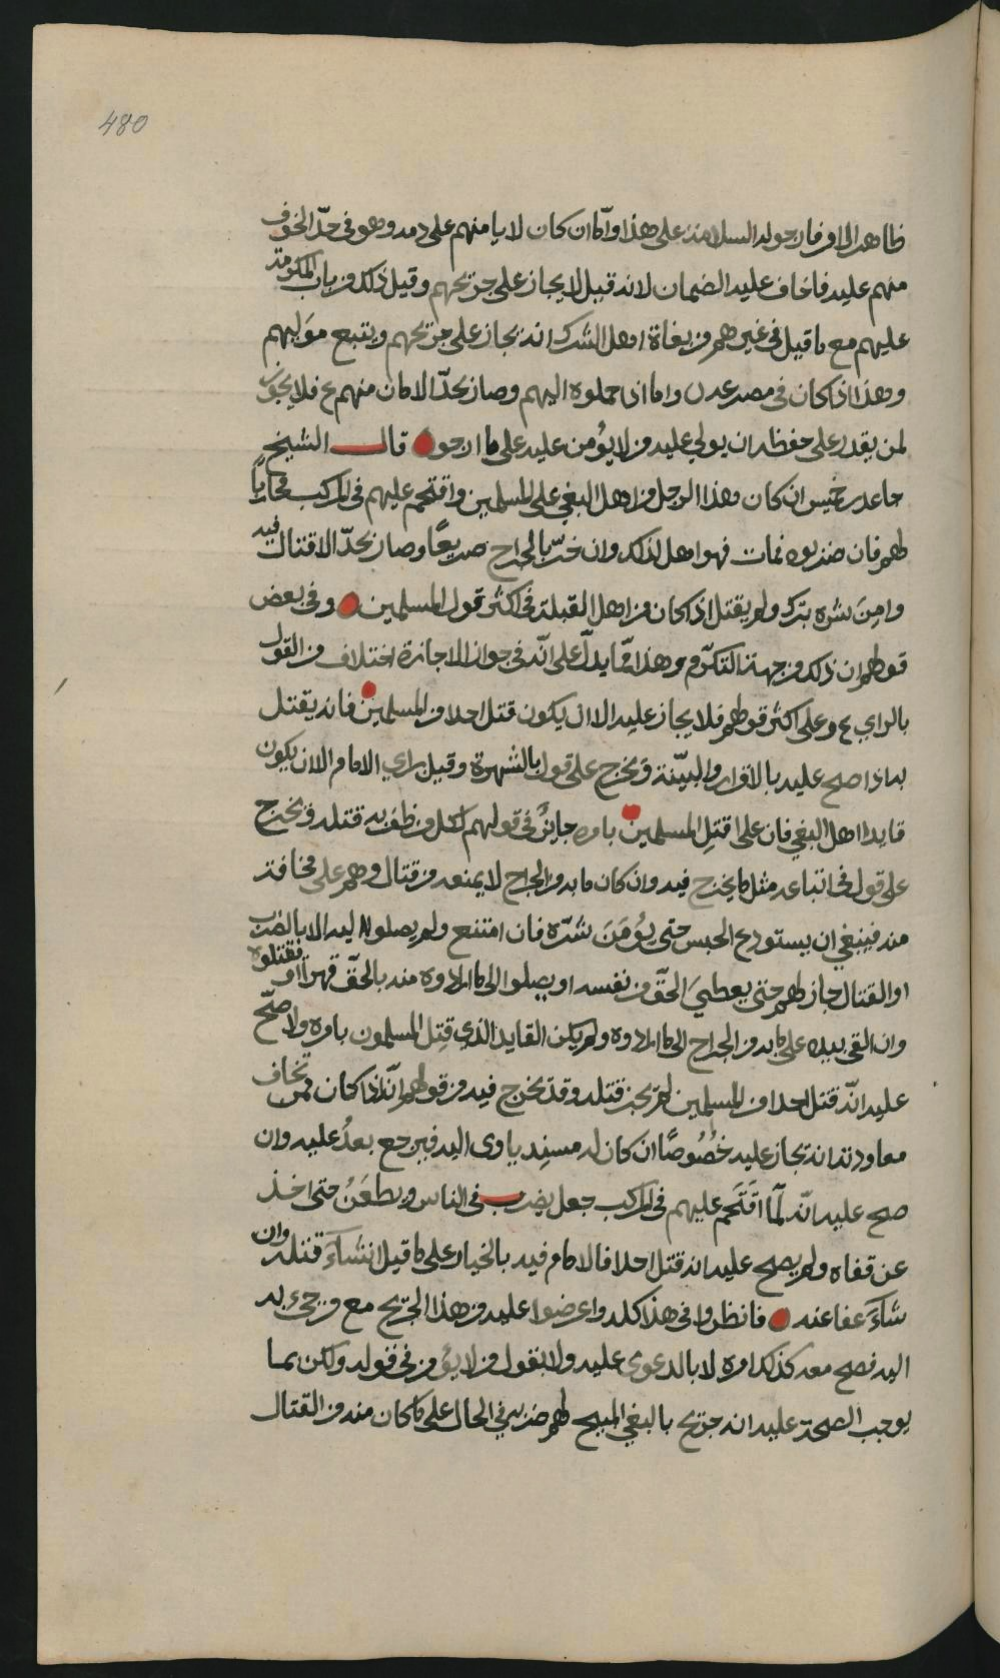 480
ظاهر الى اوفان جوله السلامة على هذا واما ان كان لا يامنهم على دمه وهو في حدّ الخوف
منهم عليه فاخاف عليه الضمان لانه قيل لا يجاز على جريحهم وقيل ذلك من باب المكرمة
عليهم مع ما قيل في غيرهم من بغاة اهل الشرك انه يجاز على جريحهم ويتبع موليهم
وهذا اذا كان في مصر عدل واما اذا حملوه اليهم وصار بحدّ الامان منهم ع فلا يجوز
لمن يقدر على حفظه ان يولي عليه من لا يُؤمن عليه على ما ارجو قال الشيخ
جاعد بن خميس ان كان هذا الرجل من اهل البغي على المسلمين واقتحم عليهم في المركب محاربًا
لهم فان ضربوه فمات فهو اهل لذلك وان خرّ بالجراح صريعًا وصار بحدّ الاقتال فيه
وامِنَ شره ترك ولم يقتل اذا كان من اهل القبلة في اكثر قول المسلمين وفي بعض
قولهم ان ذلك من جهة التكرّم وهذا مما يدلّ على انّه في جواز الاجازة اختلاف من القول
بالراي ع وعلى اكثر قولهم فلا يجاز عليه الا ان يكون قتل احدا من المسلمين فانه يقتل
به اذا صح عليه بالاقرار والبيّنة ويخرج على قول بالشهرة وقيل براي الامام الا ان يكون
قايدا اهل البغي فان على قتِل المسلمين بامره جايزٌ في قولهم لكل من ظفر به قتله ويخرج
على قول في اتباعه مثل ما يخرج فيه وان كان ما به من الجراح لا يمنعه من قتال وهم على مخافة
منه فينبغي ان يستودع الحبس حتى يُؤمَنَ شرّه فان امتنع ولم يصلوا اليه الا بالضرب
او القتال جاز لهم حتى يعطيَ الحقّ من نفسه او يصلوا الى ما ارادوه منه بالحقّ قهرا او فقتلوه
وان القى بيده على ما به من الجراح الى ما ارادوه ولم يكن القايد الذي قتِل المسلمون بامره ولا صحّ
عليه انّه قتل احدا من المسلمين لم يجز قتله وقد يخرج فيه من قولهم انّه اذا كان ممن تخاف
معاودته انه يجاز عليه خُصُوصًا ان كان له مسنِد ياوى اليه فيرجع بعدُ عليه وان
صح عليه انّه لمّا اقتَحَم عليهم في المركب جعل يضرب في الناس ويطعَنُ حتى اخذ
عن قفاه ولم يصح عليه انه قتل احدا فالامام فيه بالخيار على ما قيل ان شآءَ قتله وان
شآءَ عفا عنه فانظروا في هذا كله واعرضوا عليه من هذا الجريح مع من جيء به
اليه فصح معه كذلك امره لا بالدعوى عليه ولا بقول من لا يؤمن في قوله ولكن بما
يوجب الصحة عليه انه جريح بالبغي المبيح لهم ضربه في الحال على ما كان منه من القتال